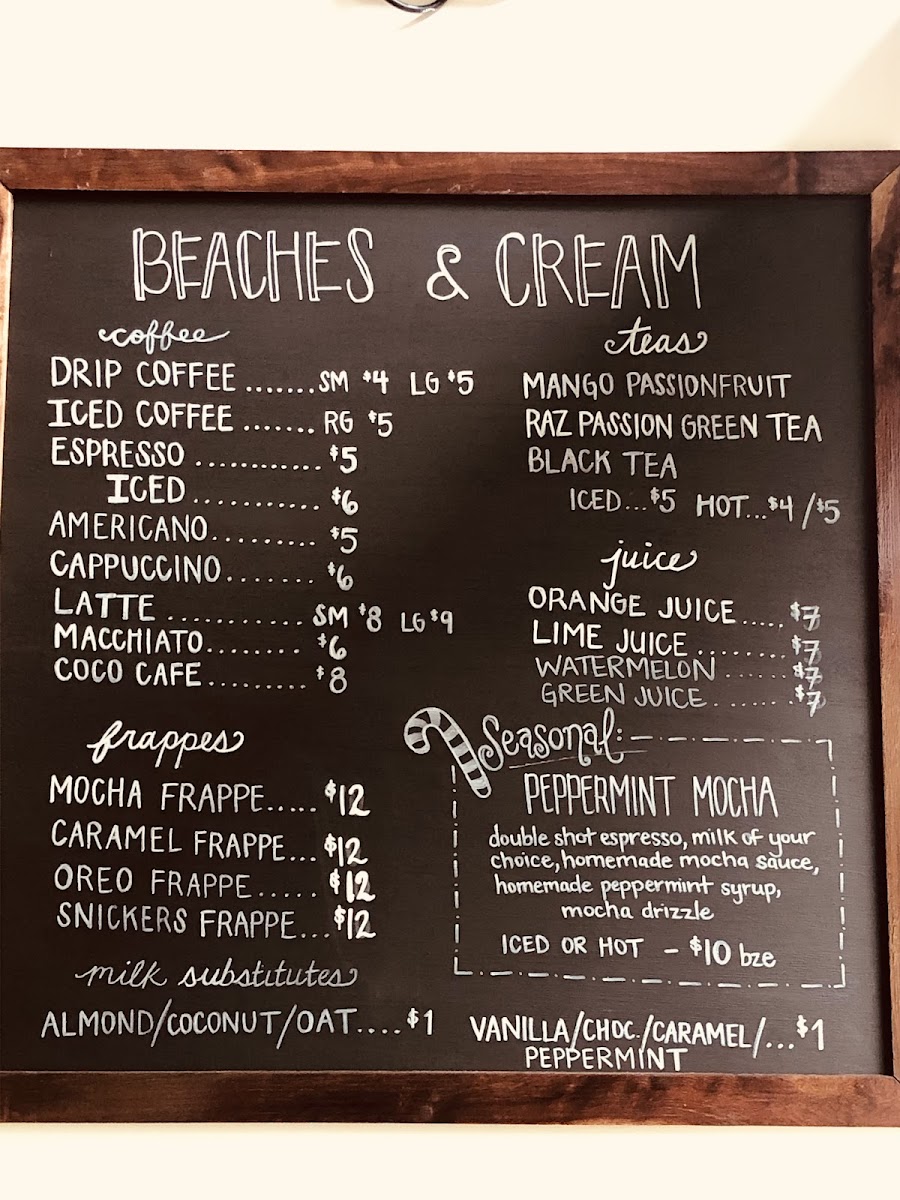 BEACHES & CREAM
coffee
DRIP COFFEE .......SM $4 LG $5
ICED COFFEE ....... RG $5
ESPRESSO ............ $5
ICED .......... $6
AMERICANO.......... $5
CAPPUCCINO....... $6
LATTE ............ SM $8 LG $9
MACCHIATO........ $6
COCO CAFE......... $8
frappes
MOCHA FRAPPE..... $12
CARAMEL FRAPPE... $12
OREO FRAPPE...... $12
SNICKERS FRAPPE... $12
milk substitutes
ALMOND/COCONUT/OAT.... $1
teas
MANGO PASSIONFRUIT
RAZ PASSION GREEN TEA
BLACK TEA
ICED...$5 HOT...$4/$5
juice
ORANGE JUICE ..... $7
LIME JUICE ........ $7
WATERMELON ...... $7
GREEN JUICE ....... $7
Seasonal:
PEPPERMINT MOCHA
double shot espresso, milk of your
choice, homemade mocha sauce,
homemade peppermint syrup,
mocha drizzle
ICED OR HOT - $10 bze
VANILLA/CHOC./CARAMEL/...$1
PEPPERMINT